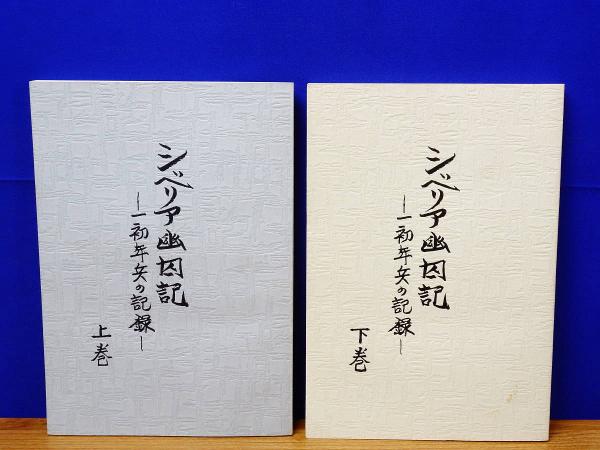 シベリア幽囚記
―一初年兵の記録―
上巻
シベリア幽囚記
―一初年兵の記録―
下巻